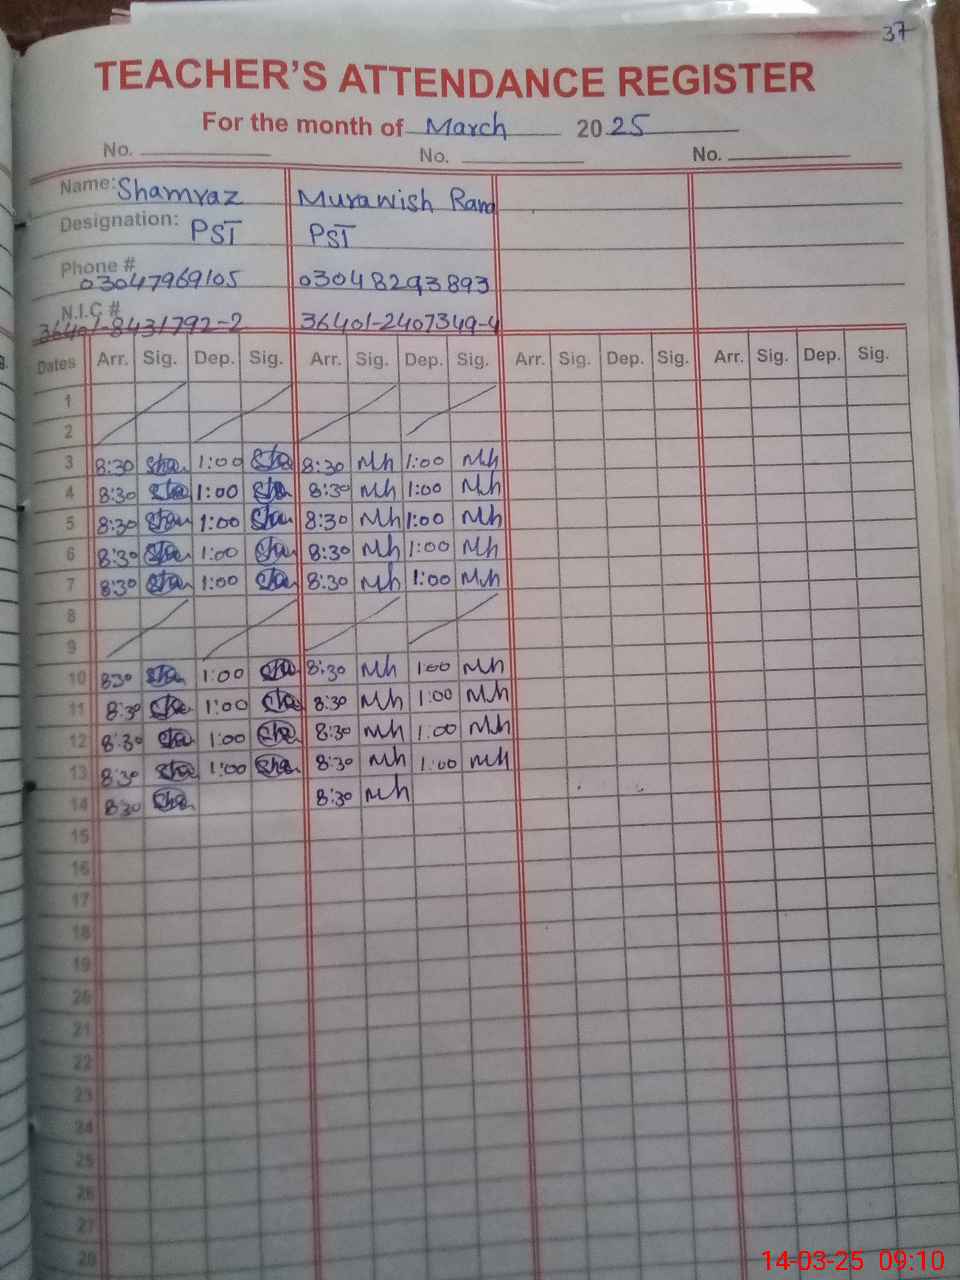 37
TEACHER'S ATTENDANCE REGISTER
For the month of March 2025
No. No. No.
Name: Shamraz Murawish Rana
Designation: PST PST
Phone # 03047969105 03048293893
N.I.C # 36401-8431792-2 36401-2407349-4
Dates Arr. Sig. Dep. Sig. Arr. Sig. Dep. Sig. Arr. Sig. Dep. Sig. Arr. Sig. Dep. Sig.
1
2
3 8:30 Sha 1:00 Sha 8:30 Mh 1:00 Mh
4 8:30 Sha 1:00 Sha 8:30 Mh 1:00 Mh
5 8:30 Sha 1:00 Sha 8:30 Mh 1:00 Mh
6 8:30 Sha 1:00 Sha 8:30 Mh 1:00 Mh
7 8:30 Sha 1:00 Sha 8:30 Mh 1:00 Mh
8
9
10 830 Sha 1:00 Sha 8:30 Mh 1:00 Mh
11 8:30 Sha 1:00 Sha 8:30 Mh 1:00 Mh
12 8:30 Sha 1:00 Sha 8:30 Mh 1:00 Mh
13 8:30 Sha 1:00 Sha 8:30 Mh 1:00 Mh
14 8:30 Sha 8:30 Mh
15
16
17
18
19
20
21
22
23
24
25
26
27
28
14-03-25 09:10